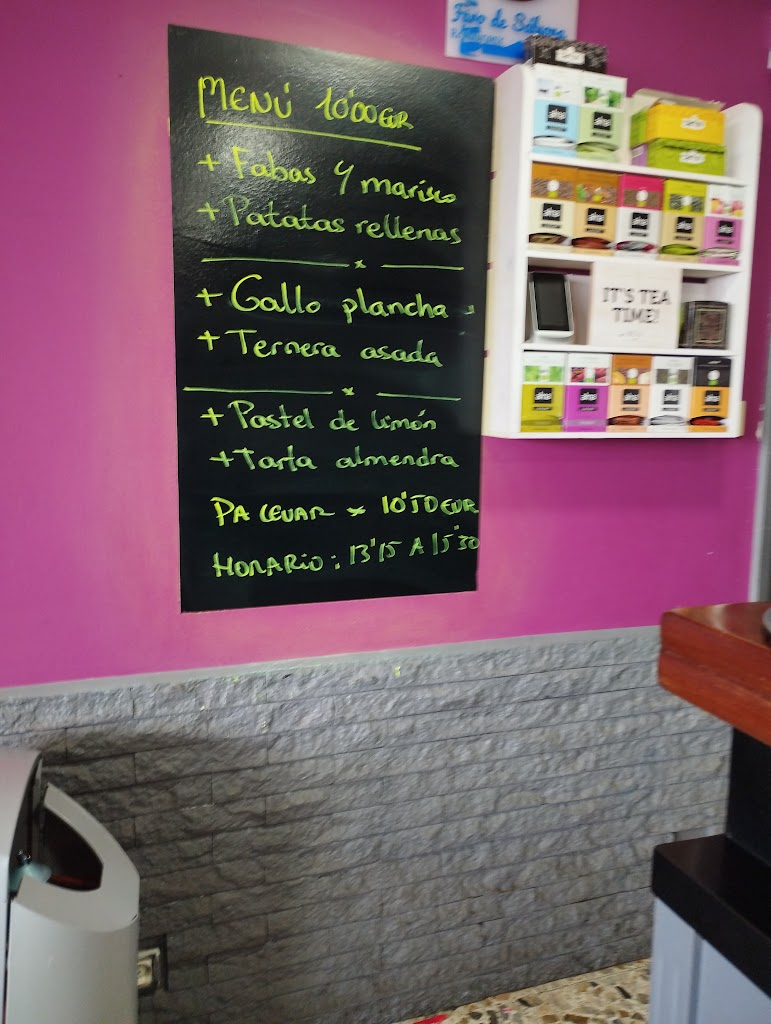 MENÚ 10'00 EUR
+ Fabas y marisco
+ Patatas rellenas
x
+ Gallo plancha
+ Ternera asada
x
+ Pastel de limón
+ Tarta almendra
PA LEVAR x 10'50 EUR
HORARIO: 13'15 A 15'30
Faro de
IT'S TEA
TIME!